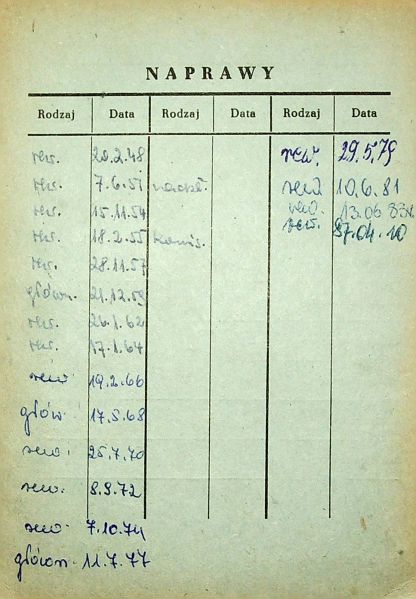 NAPRAWY
Rodzaj Data Rodzaj Data Rodzaj Data
rew. 20.2.48 rew. 29.5.79
rew. 7.6.51 rew 10.6.81
rew. 15.11.54 rew. 13.06 83r.
rew. 18.2.55 rew. 87.04.10
rew. 28.11.57
główn. 21.12.59
rew. 26.1.62
rew. 17.1.64
rew 19.2.66
głów. 17.5.68
rew. 25.7.70
rew. 8.9.72
rew. 7.10.74
główn. 11.7.77